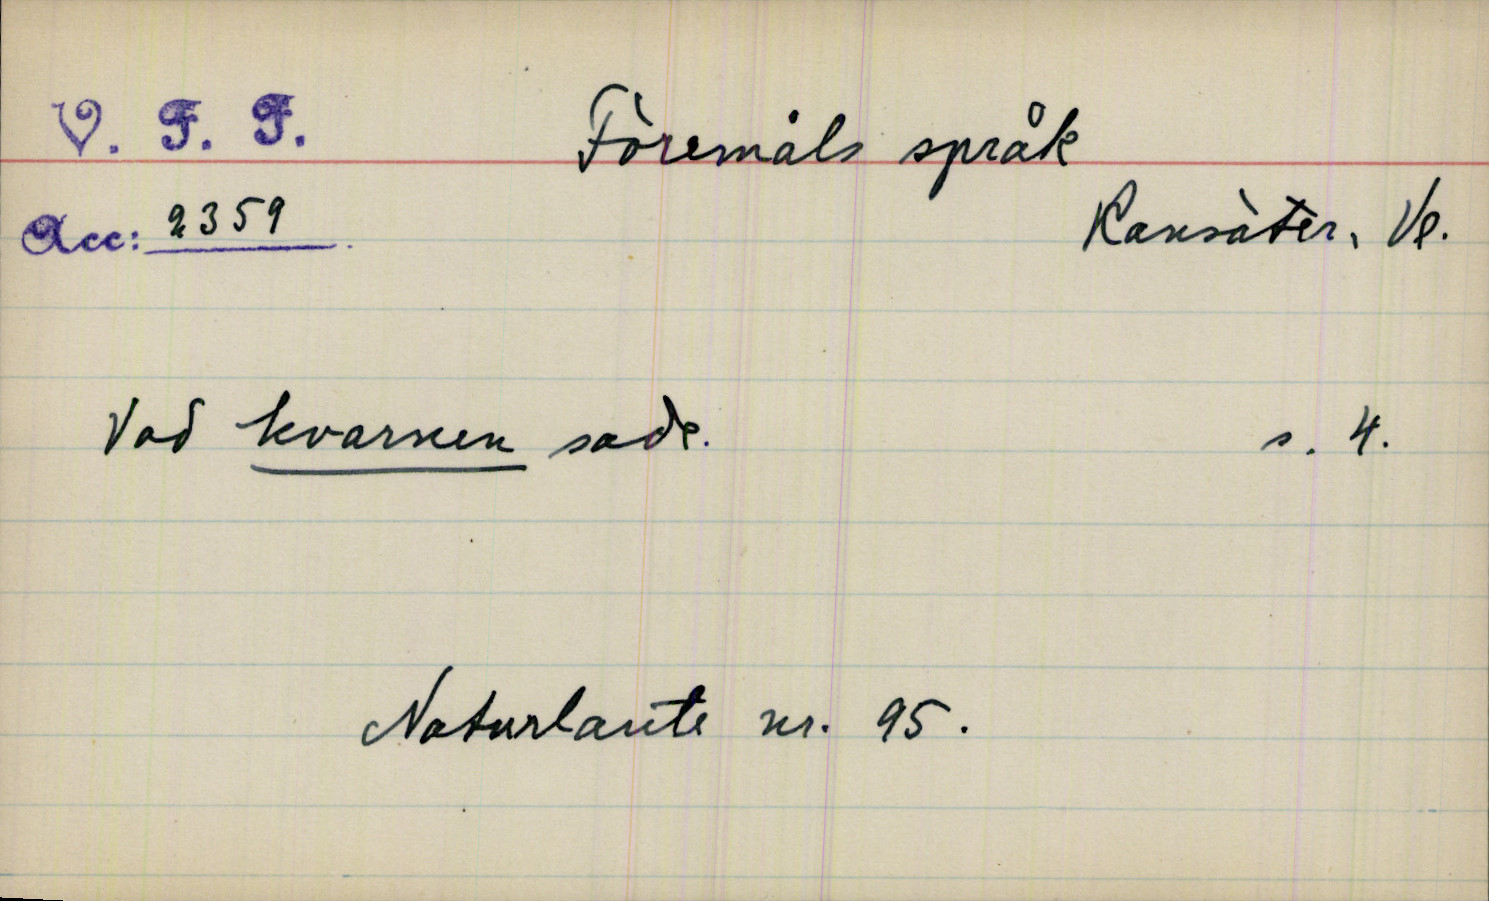 V. F. F.
Föremåls språk
Acc: 2359
Ransäter, Vl.
Vad kvarnen sade.
s. 4.
Naturlaute nr. 95.